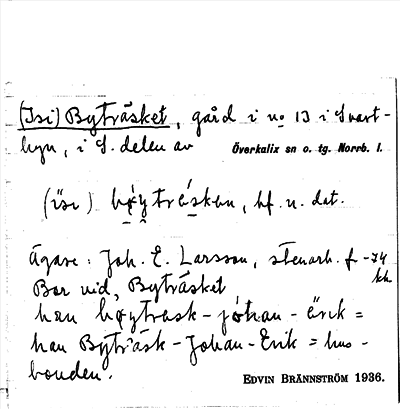 (Isi) Byträsket, gård i no 13 i Svart-
byn, i S. delen av Överkalix sn o. tg. Norrb. l.
(ösi) bøyträskən, bf. n. dat.
Ägare: Joh. E. Larsson, stenarb. f -74
Bor vid, Byträsket kh
han bøytrask-jóhan-ärik =
han Byträsk-Johan-Erik = hus-
bonden.
EDVIN BRÄNNSTRÖM 1936.